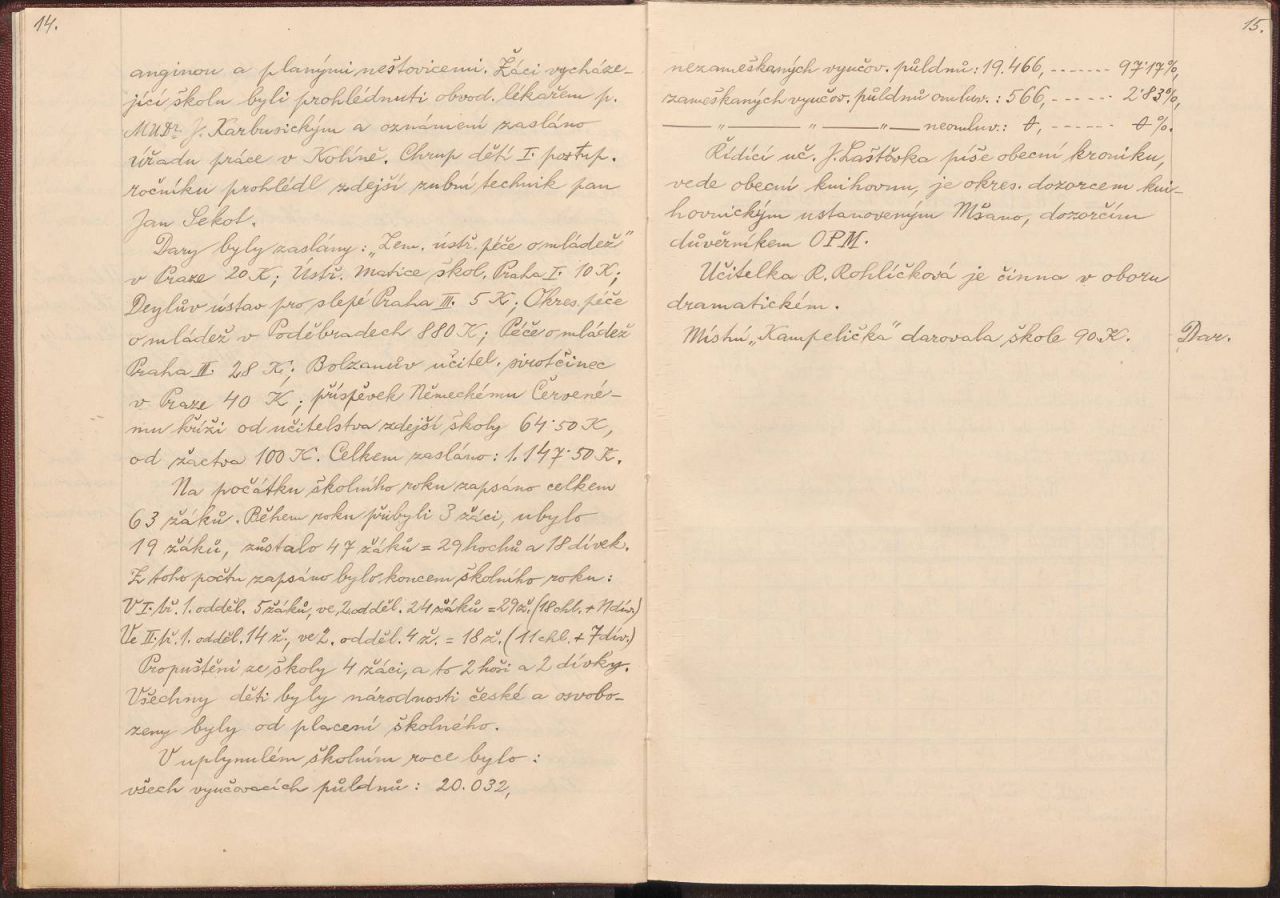 14.
anginou a planými neštovicemi. Žáci vycháze-
jící školu byli prohlédnuti obvod. lékařem p.
MUDr. J. Karbusickým a oznámení zasláno
úřadu práce v Kolíně. Chrup dětí I. postup.
ročníku prohlédl zdejší zubní technik pan
Jan Sekot.
Dary byly zaslány: „Zem. ústř. péče o mládež"
v Praze 20 K; Ústř. Matice škol. Praha I. 10 K;
Deylův ústav pro slepé Praha III. 5 K; Okres. péče
o mládež v Poděbradech 880 K; Péče o mládež
Praha II. 28 K; Bolzanův učitel. sirotčinec
v Praze 40 K; příspěvek Německému Červené-
mu kříži od učitelstva zdejší školy 64·50 K,
od žactva 100 K. Celkem zasláno: 1.147·50 K.
Na počátku školního roku zapsáno celkem
63 žáků. Během roku přibyli 3 žáci, ubylo
19 žáků, zůstalo 47 žáků = 29 hochů a 18 dívek.
Z toho počtu zapsáno bylo koncem školního roku:
V I. tř. 1. odděl. 5 žáků, ve 2. odděl. 24 žáků = 29 ž. (18 chl. + 11 dív.)
Ve II. tř. 1. odděl. 14 ž., ve 2. odděl. 4 ž. = 18 ž. (11 chl. + 7 dív.)
Propuštěni ze školy 4 žáci, a to 2 hoši a 2 dívky.
Všechny děti byly národnosti české a osvobo-
zeny byly od placení školného.
V uplynulém školním roce bylo:
všech vyučovacích půldnů: 20.032,
15.
nezameškaných vyučov. půldnů: 19.466, ------- 97·17%,
zameškaných vyučov. půldnů omluv.: 566, ----- 2·83%,
— „ — „ — „ — neomluv.: 0, ------ 0%.
Řídící uč. J. Laštůvka píše obecní kroniku,
vede obecní knihovnu, je okres. dozorcem kni-
hovnickým ustanoveným Mšano, dozorčím
důvěrníkem OPM.
Učitelka R. Rohlíčková je činna v oboru
dramatickém.
Místní „Kampelička" darovala škole 90 K.
Dar.